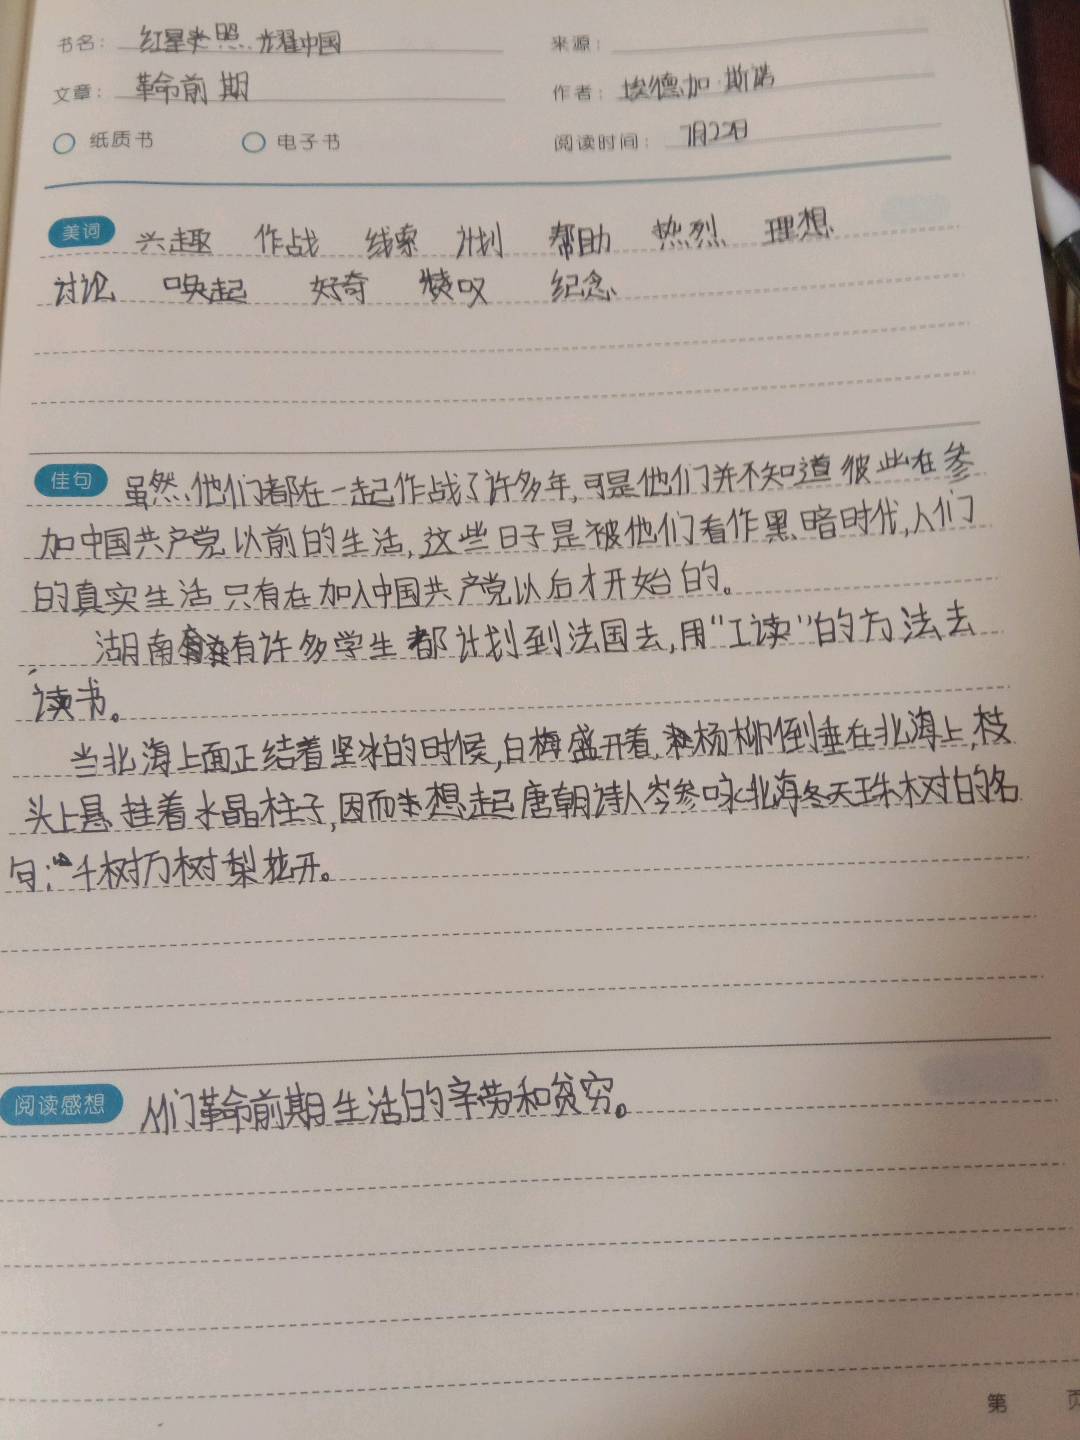 书名： 红星光照.光耀中国 来源：
文章： 革命前期 作者： 埃德加·斯诺
纸质书 电子书 阅读时间： 7月22日
美词 兴趣 作战 线索 计划 帮助 热烈 理想
讨论 唤起 好奇 赞叹 纪念
佳句 虽然,他们都在一起作战了许多年,可是他们并不知道彼此在参
加中国共产党以前的生活,这些日子是被他们看作黑暗时代,人们
的真实生活只有在加入中国共产党以后才开始的。
湖南有许多学生都计划到法国去,用“工读”的方法去
读书。
当北海上面正结着坚冰的时候,白梅盛开着,杨柳倒垂在北海上,枝
头上悬挂着水晶柱子,因而想起唐朝诗人岑参咏北海冬天珠树的名
句:“千树万树梨花开。
阅读感想 人们革命前期生活的辛劳和贫穷。
第 页